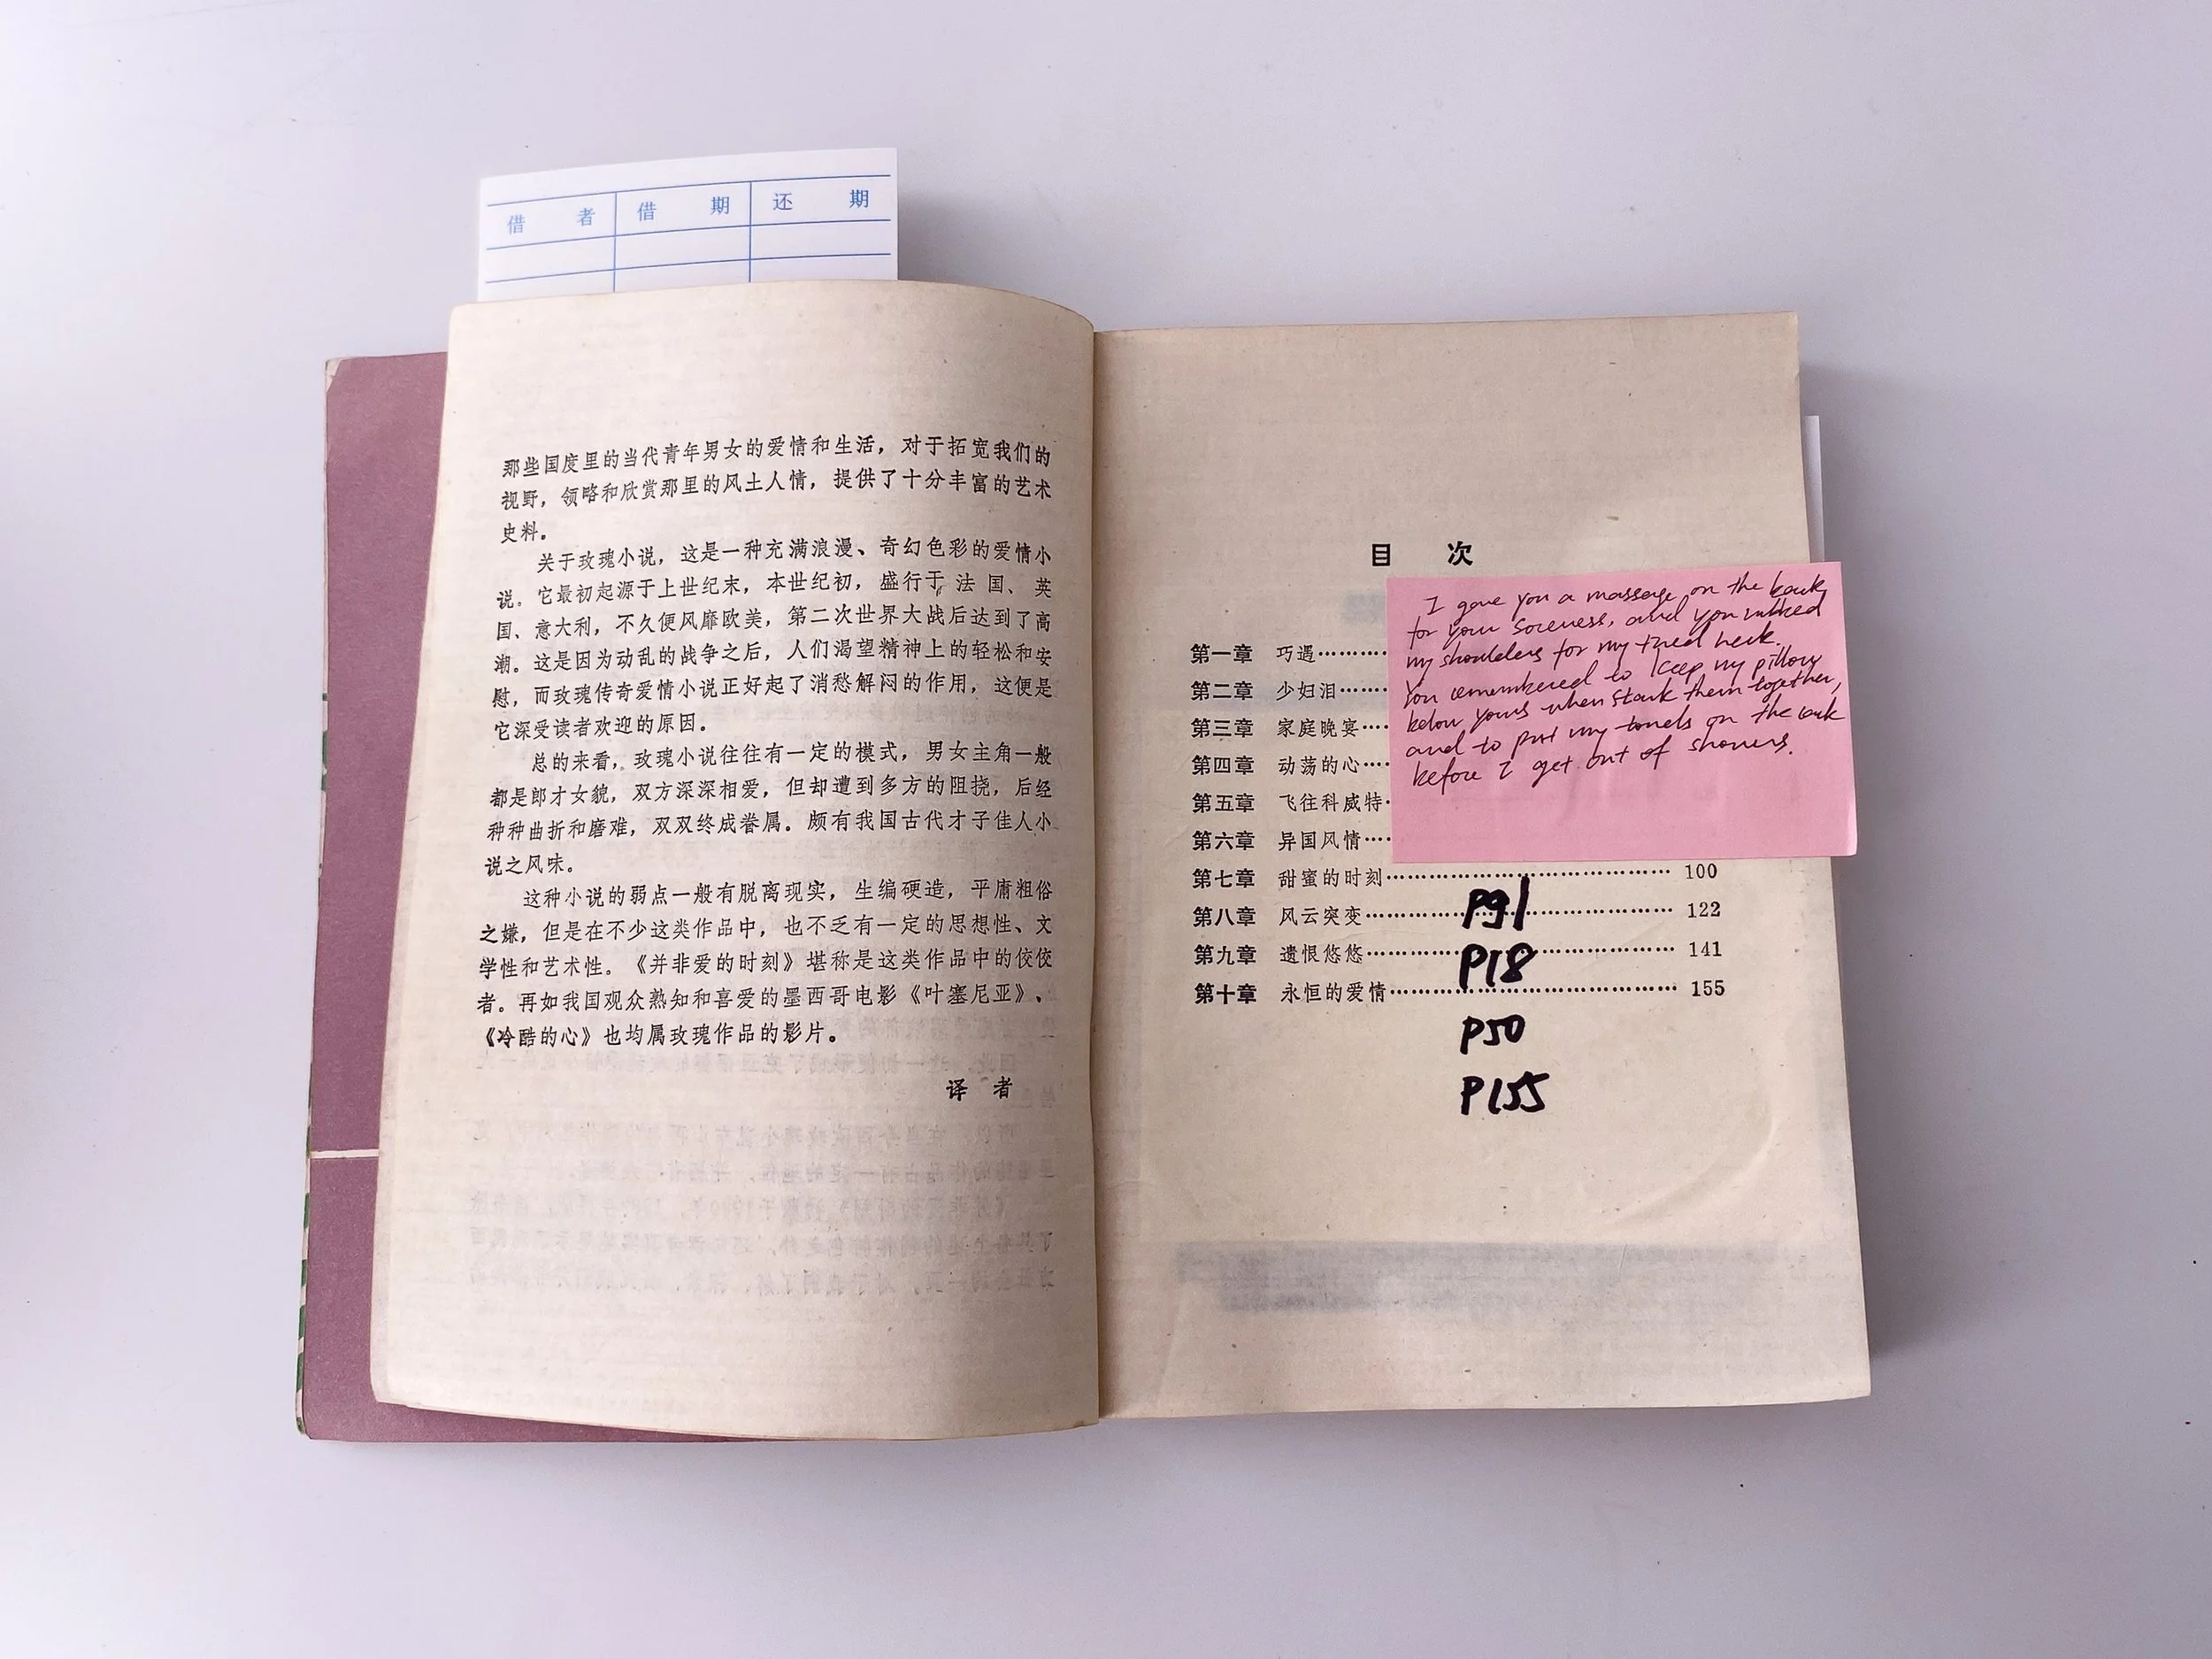 借 者 借 期 还 期
那些国度里的当代青年男女的爱情和生活，对于拓宽我们的
视野，领略和欣赏那里的风土人情，提供了十分丰富的艺术
史料。
关于玫瑰小说，这是一种充满浪漫、奇幻色彩的爱情小
说。它最初起源于上世纪末，本世纪初，盛行于法国、英
国、意大利，不久便风靡欧美，第二次世界大战后达到了高
潮。这是因为动乱的战争之后，人们渴望精神上的轻松和安
慰，而玫瑰传奇爱情小说正好起了消愁解闷的作用，这便是
它深受读者欢迎的原因。
总的来看，玫瑰小说往往有一定的模式，男女主角一般
都是郎才女貌，双方深深相爱，但却遭到多方的阻挠，后经
种种曲折和磨难，双双终成眷属。颇有我国古代才子佳人小
说之风味。
这种小说的弱点一般有脱离现实，生编硬造，平庸粗俗
之嫌，但是在不少这类作品中，也不乏有一定的思想性、文
学性和艺术性。《并非爱的时刻》堪称是这类作品中的佼佼
者。再如我国观众熟知和喜爱的墨西哥电影《叶塞尼亚》、
《冷酷的心》也均属玫瑰作品的影片。
译 者
目 次
I gave you a massage on the back
for your soreness, and you rubbed
my shoulders for my tired neck.
You remembered to keep my pillow
below yours when stack them together,
and to put my towels on the rack
before I get out of showers.
第一章 巧遇………
第二章 少妇泪……
第三章 家庭晚宴…
第四章 动荡的心…
第五章 飞往科威特·
第六章 异国风情…
第七章 甜蜜的时刻…………………………………… 100
第八章 风云突变……………………………………… 122
第九章 遗恨悠悠……………………………………… 141
第十章 永恒的爱情…………………………………… 155
P91
P18
P50
P155